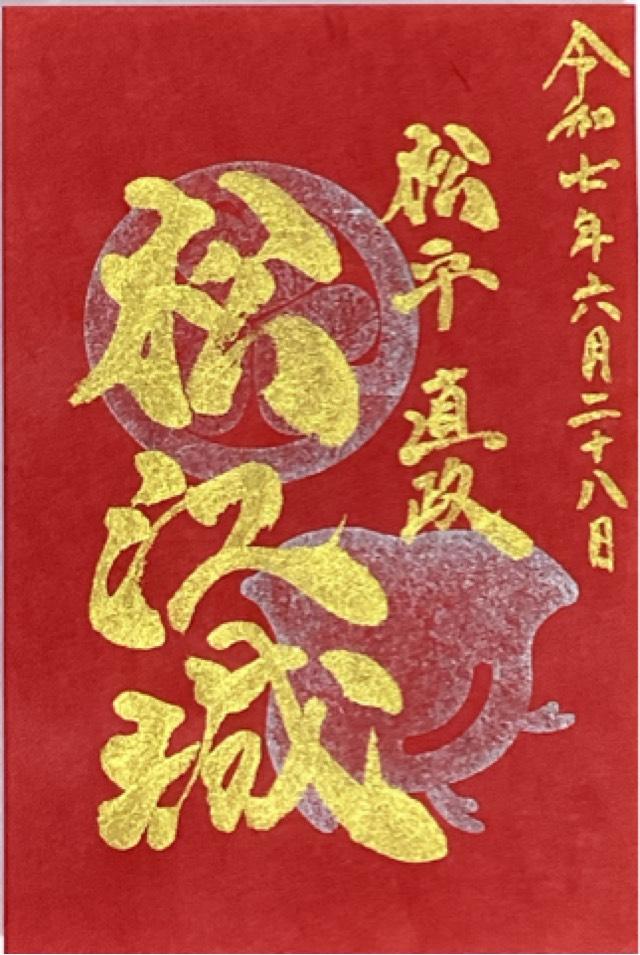 令和七年六月二十八日
松平 直政
松江城